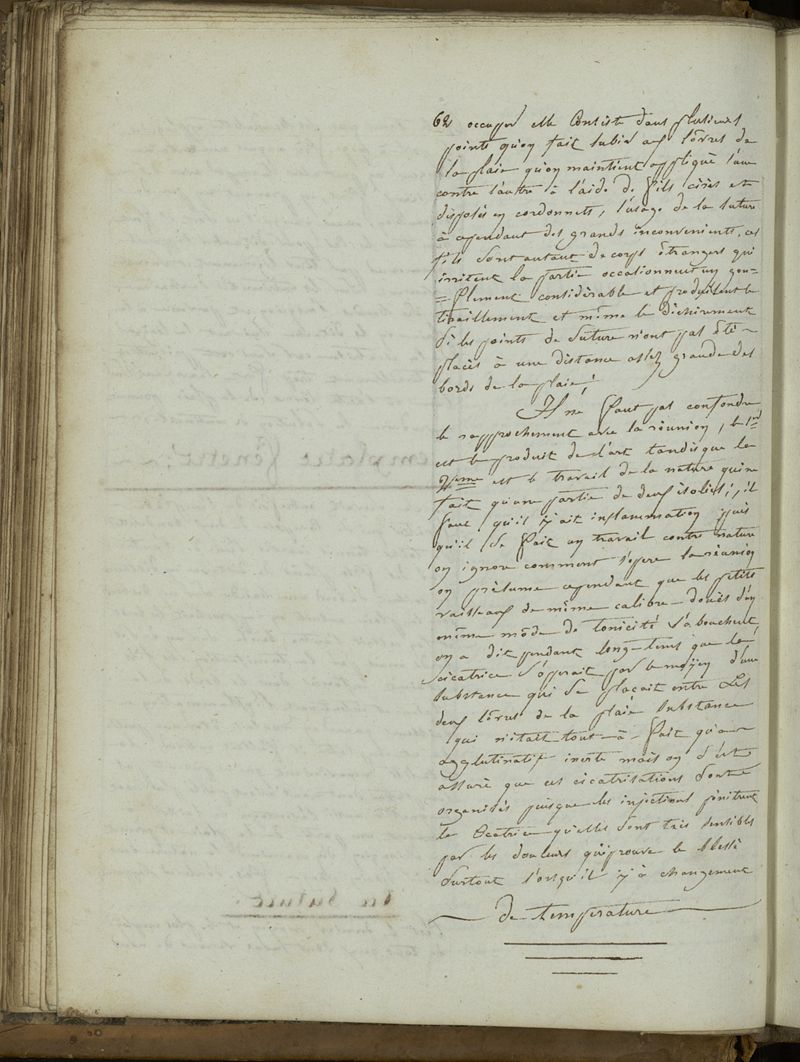 62 occuper elle Consiste dans plusieurs
points qu'on fait subir aux lèvres de
la plaie qu'on maintient appliqué l'une
contre l'autre à l'aide de fils cirés et
disposés en cordonnets, l'usage de la suture
à cependant des grands inconvenients, ces
fils sont autant de corps étrangers qui
irritent la partie occasionnent un gon=
=flement considérable et produisent le
tiraillement et même le déchirement
si les points de suture n'ont pas été
placés à une distance assez grande des
bords de la plaie.
Il ne faut pas confondre
le rapprochement avec la réunion, le 1er
est le produit de l'art tandis que le
2eme est le travail de la nature qui ne
fait qu'une partie de deux isolées, il
faut qu'il y ait inflammation puis
qu'il se fait un travail contre nature
on ignore comment s'opere la réunion
on présume cependant que les petits
vaisseaux de même calibre doués d'un
même mode de tonicité s'abouchent,
on a dit pendant long-tems que la
cicatrice s'opérait par le moyen d'une
substance qui se plaçait entre Les
deux lèvres de la plaie substance
qui n'était tout-à-fait qu'un
agglutinatif inerte mais on s'est
assuré que ces cicatrisations sont
organisés puisque les injections pénètrent
la cicatrice qu'elles sont très sensibles
par les douleurs qu'éprouve le blessé
surtout lorsqu'il y à changement
de temperature